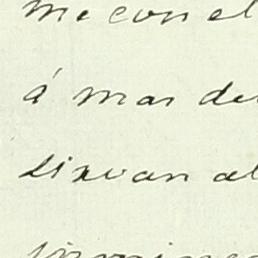 me con el
á mas de
sirvan al